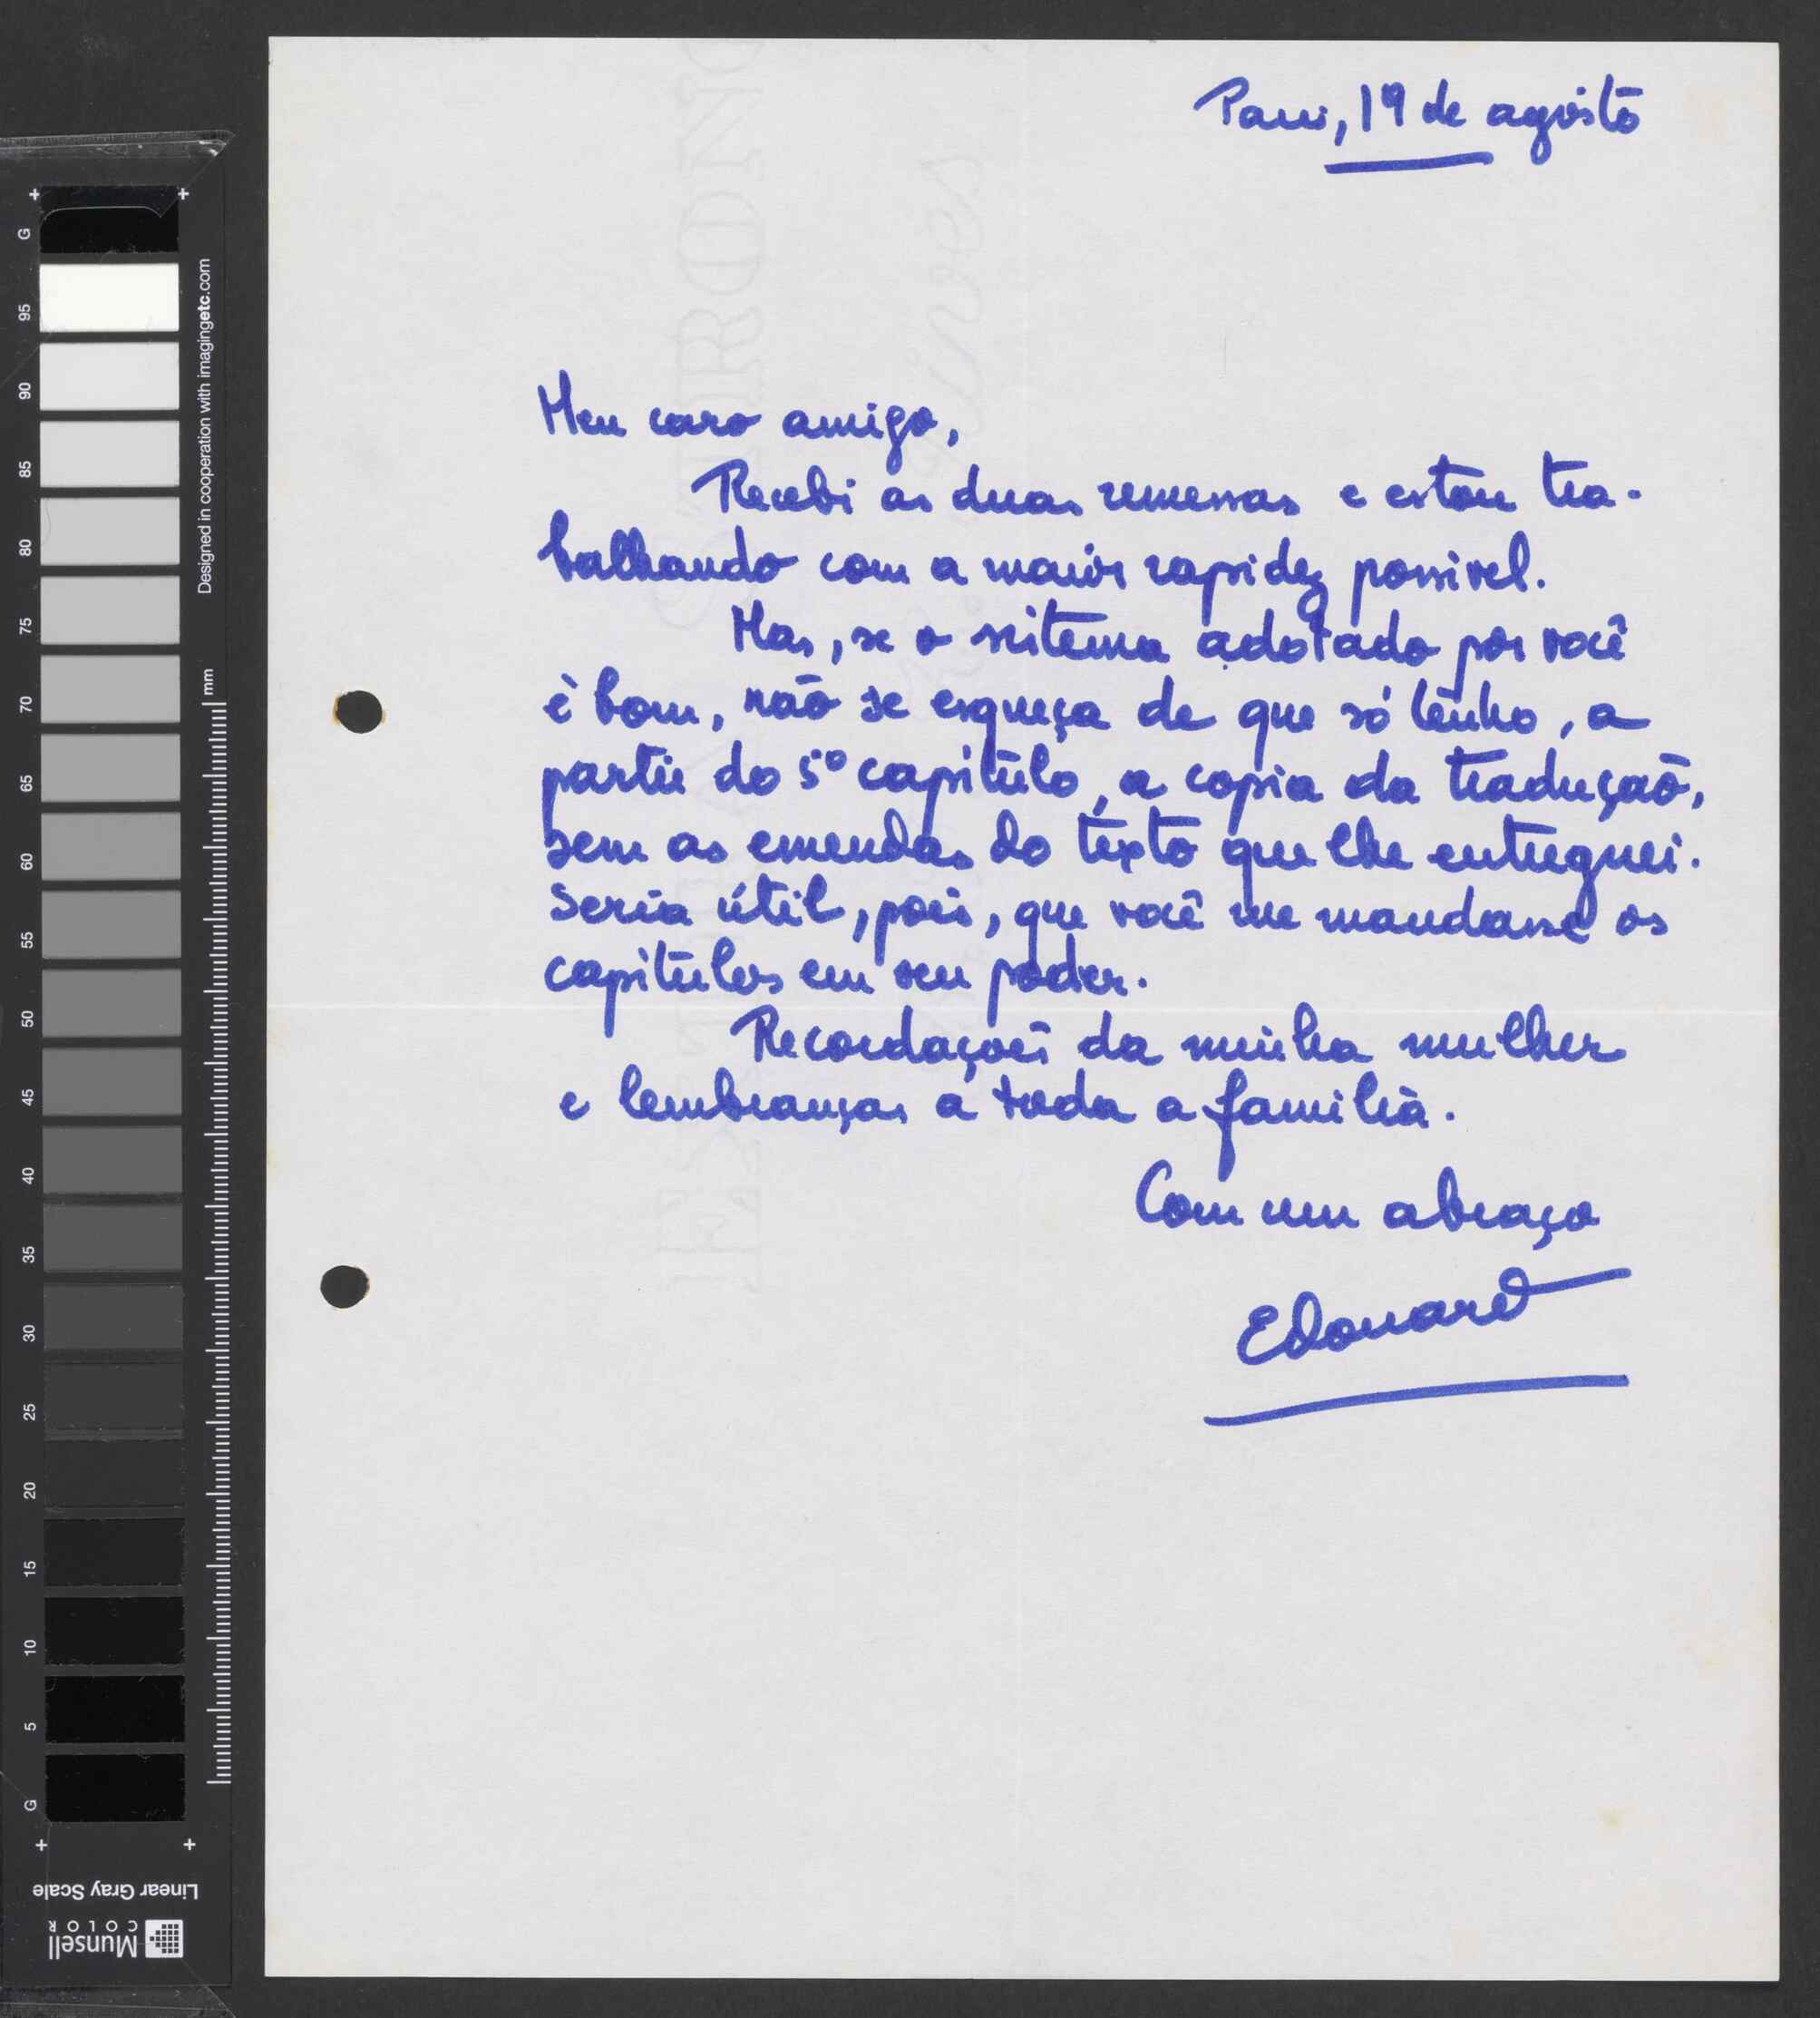 Paris, 19 de agosto
Meu caro amigo,
Recebi as duas remessas e estou tra-
balhando com a maior rapidez possivel.
Mas, se o sistema adotado por você
é bom, não se esqueça de que só tenho, a
partir do 5º capitulo, a copia da tradução,
sem as emendas do texto que lhe entreguei.
Seria útil, pois, que você me mandasse os
capitulos em seu poder.
Recordações da minha mulher
e lembranças a toda a familia.
Com um abraço
Edouard
Designed in cooperation with imagingetc.com
mm
G
95
90
85
80
75
70
65
60
55
50
45
40
35
30
25
20
15
10
5
G
Linear Gray Scale
Munsell
COLOR